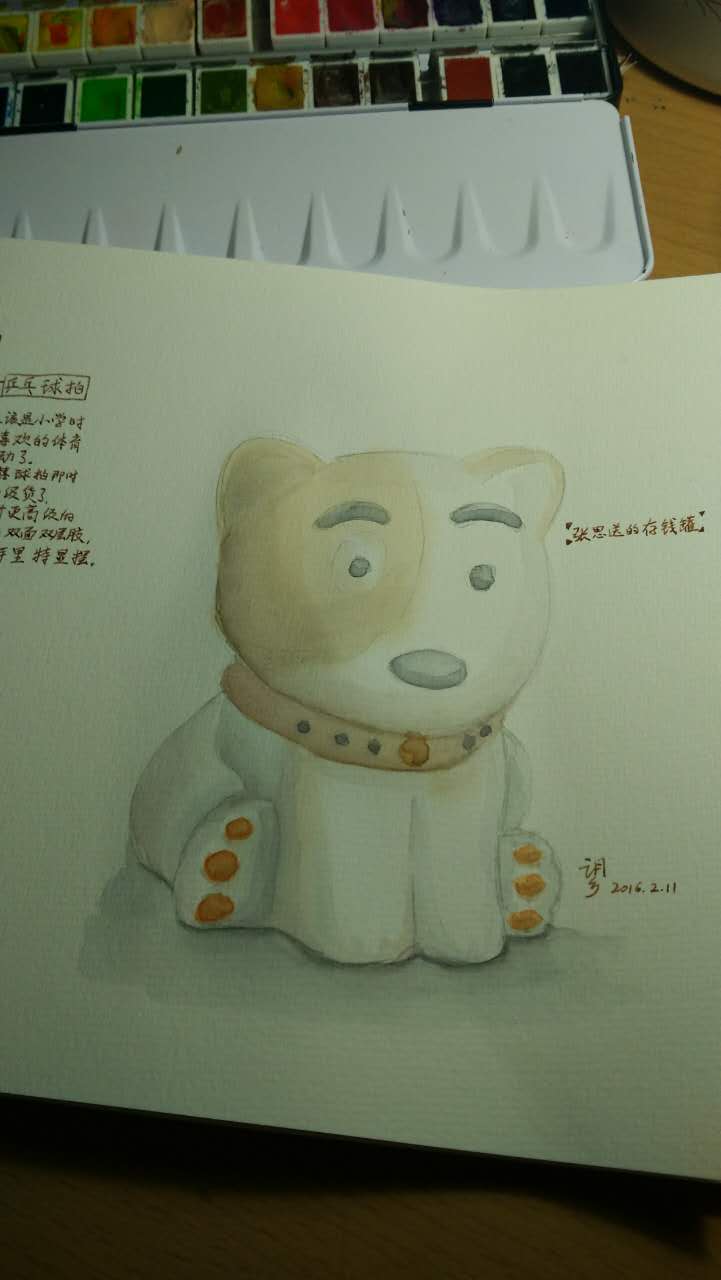 乒乓球拍
该是小学时
喜欢的体育
动了.
球拍即时
级货了.
更高级的
双面双层胶,
手里特显摆.
张思送的存钱罐
2016.2.11